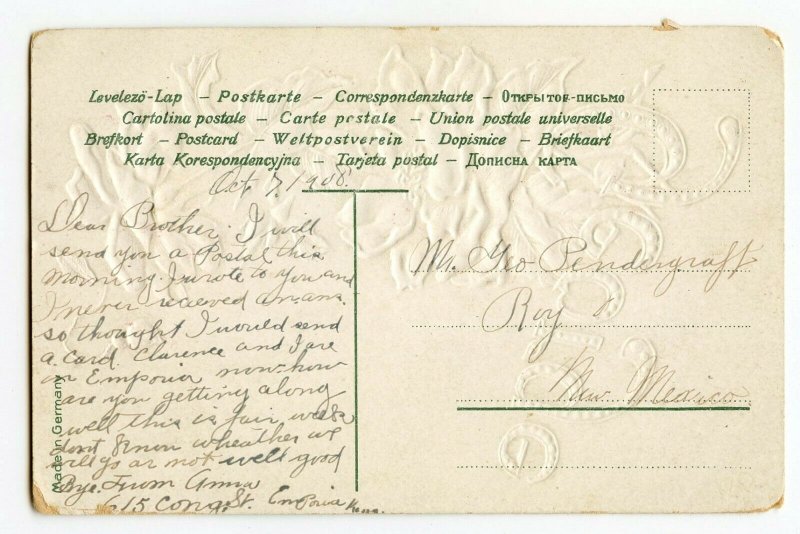 Levelező-Lap – Postkarte – Correspondenzkarte – Открытое-письмо
Cartolina postale – Carte postale – Union postale universelle
Brefkort – Postcard – Weltpostverein – Dopisnice – Briefkaart
Karta Korespondencyjna – Tarjeta postal – Дописна карта
Oct 7, 1908.
Dear Brother. I will
send you a Postal this
morning. I wrote to you and
I never received an ans.
so thought I would send
a card. Clarence and I are
in Emporia now. how
are you getting along
well this is fair week
dont know wheather we
will go or not well good
Bye. From Anna
615 Cong. St. Emporia Kans.
Mr. Geo Pendergraft
Roy
New Mexico
Made in Germany